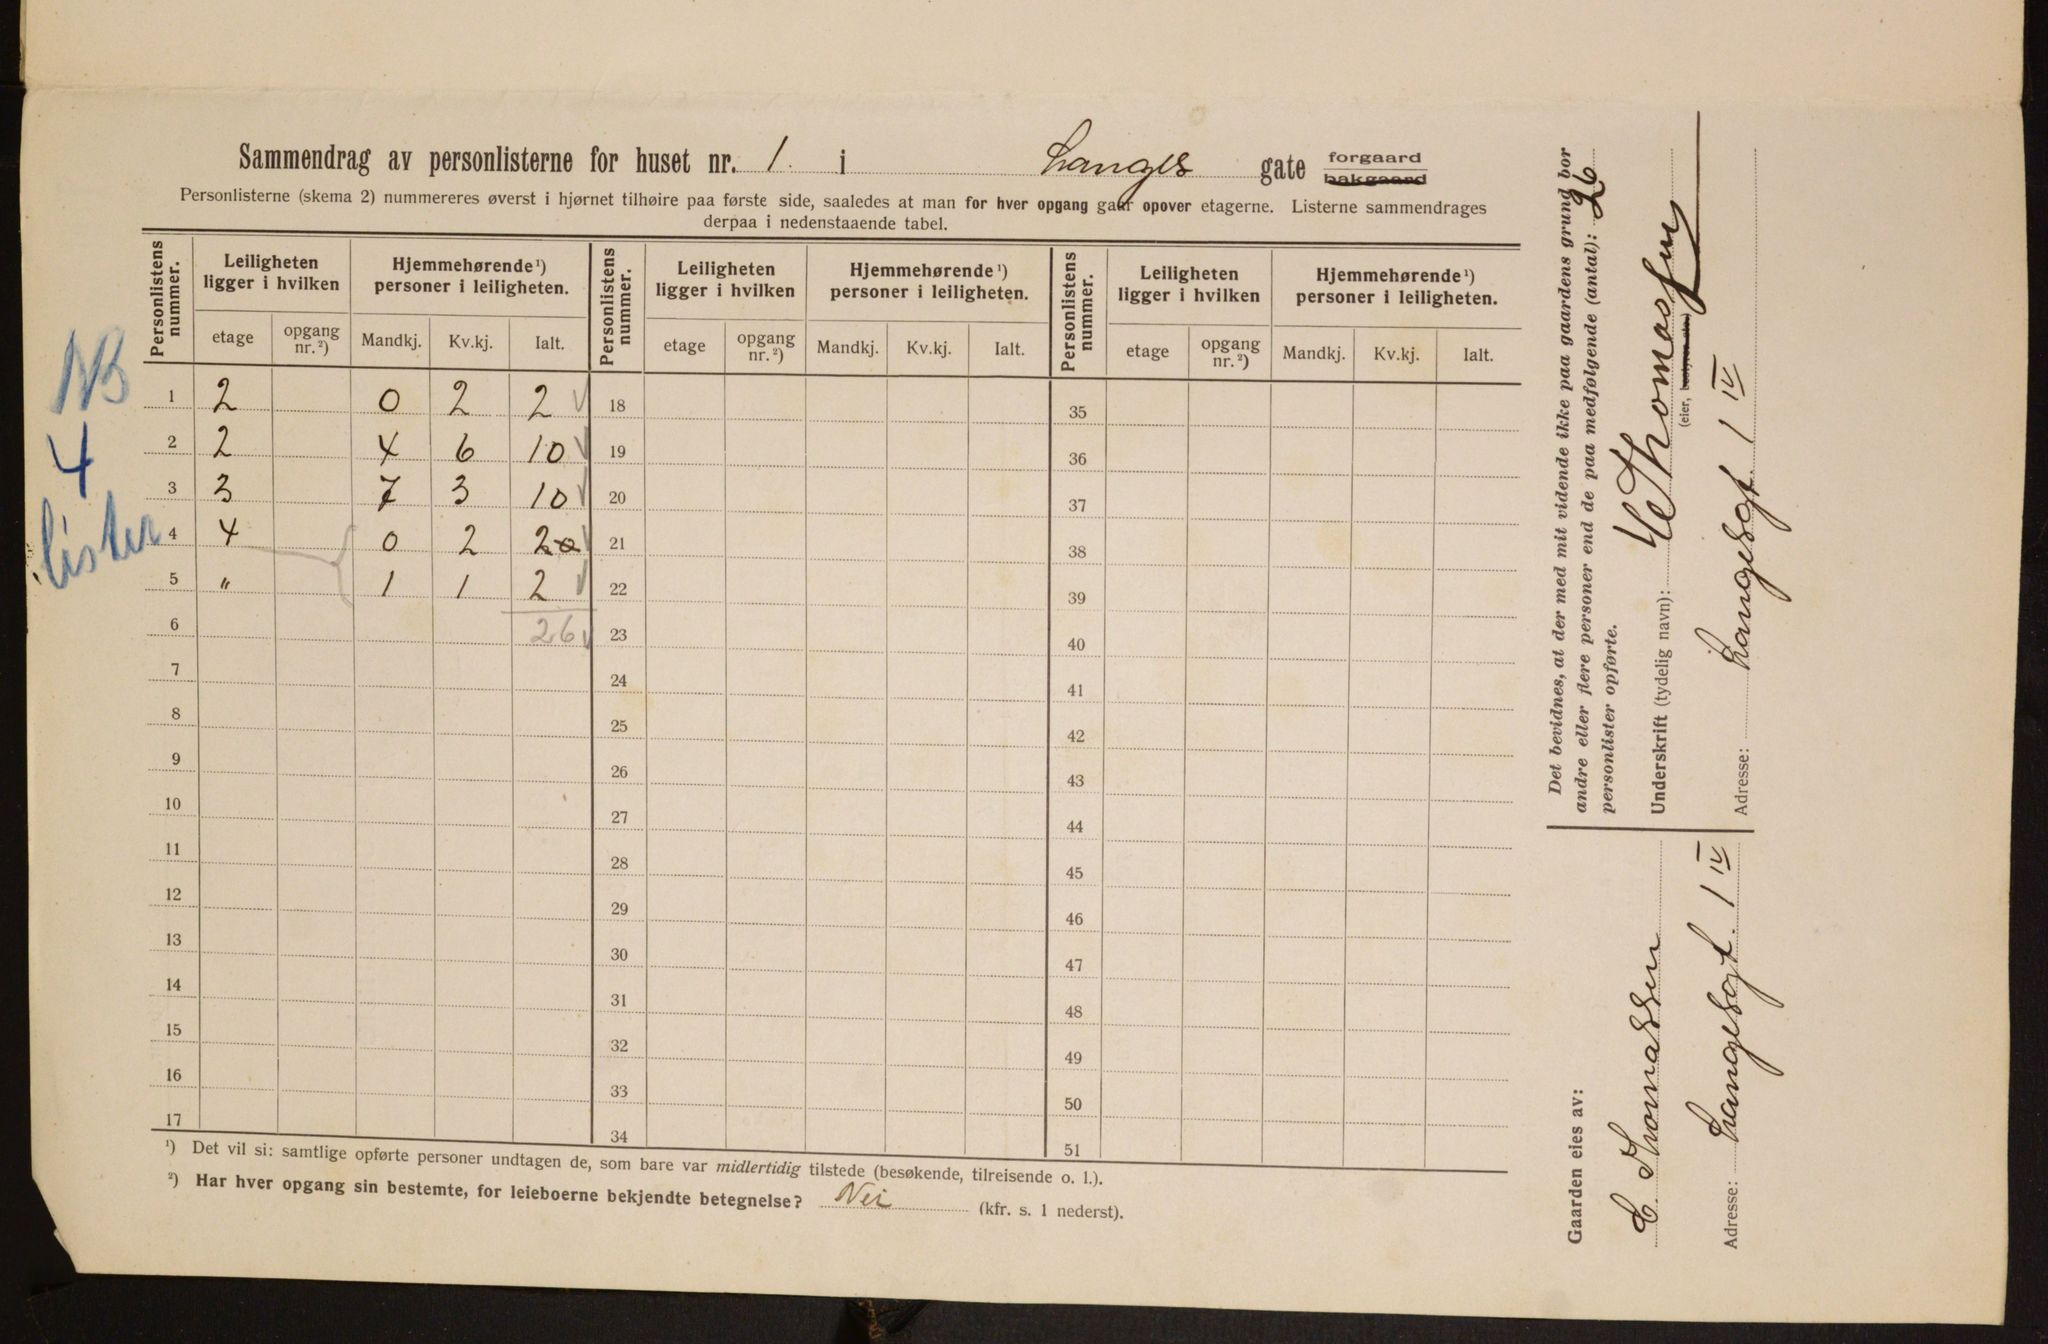 Sammendrag av personlisterne for huset nr. 1. i Langes gate forgaard bakgaard
Personlisterne (skema 2) nummereres øverst i hjørnet tilhøire paa første side, saaledes at man for hver opgang gaar opover etagerne. Listerne sammendrages
derpaa i nedenstaaende tabel.
Personlistens nummer. Leiligheten ligger i hvilken Hjemmehørende¹) personer i leiligheten. Personlistens nummer. Leiligheten ligger i hvilken Hjemmehørende¹) personer i leiligheten. Personlistens nummer. Leiligheten ligger i hvilken Hjemmehørende¹) personer i leiligheten.
etage opgang nr.²) Mandkj. Kv.kj. Ialt. etage opgang nr.²) Mandkj. Kv.kj. Ialt. etage opgang nr.²) Mandkj. Kv.kj. Ialt.
NB
4
lister
1 2 0 2 2 18 35
2 2 4 6 10 19 36
3 3 7 3 10 20 37
4 4 0 2 2 21 38
5 " 1 1 2 22 39
6 26 23 40
7 24 41
8 25 42
9 26 43
10 27 44
11 28 45
12 29 46
13 30 47
14 31 48
15 32 49
16 33 50
17 34 51
¹) Det vil si: samtlige opførte personer undtagen de, som bare var midlertidig tilstede (besøkende, tilreisende o. l.).
²) Har hver opgang sin bestemte, for leieboerne bekjendte betegnelse? Nei (kfr. s. 1 nederst).
Det bevidnes, at der med mit vidende ikke paa gaardens grund bor
andre eller flere personer end de paa medfølgende (antal): 26
personlister opførte.
Underskrift (tydelig navn): Thomassen
(eier, bestyrer etc.)
Adresse: Langesgt. 1 IV
Gaarden eies av:
C. Thomassen
Adresse: Langesgt. 1 IV